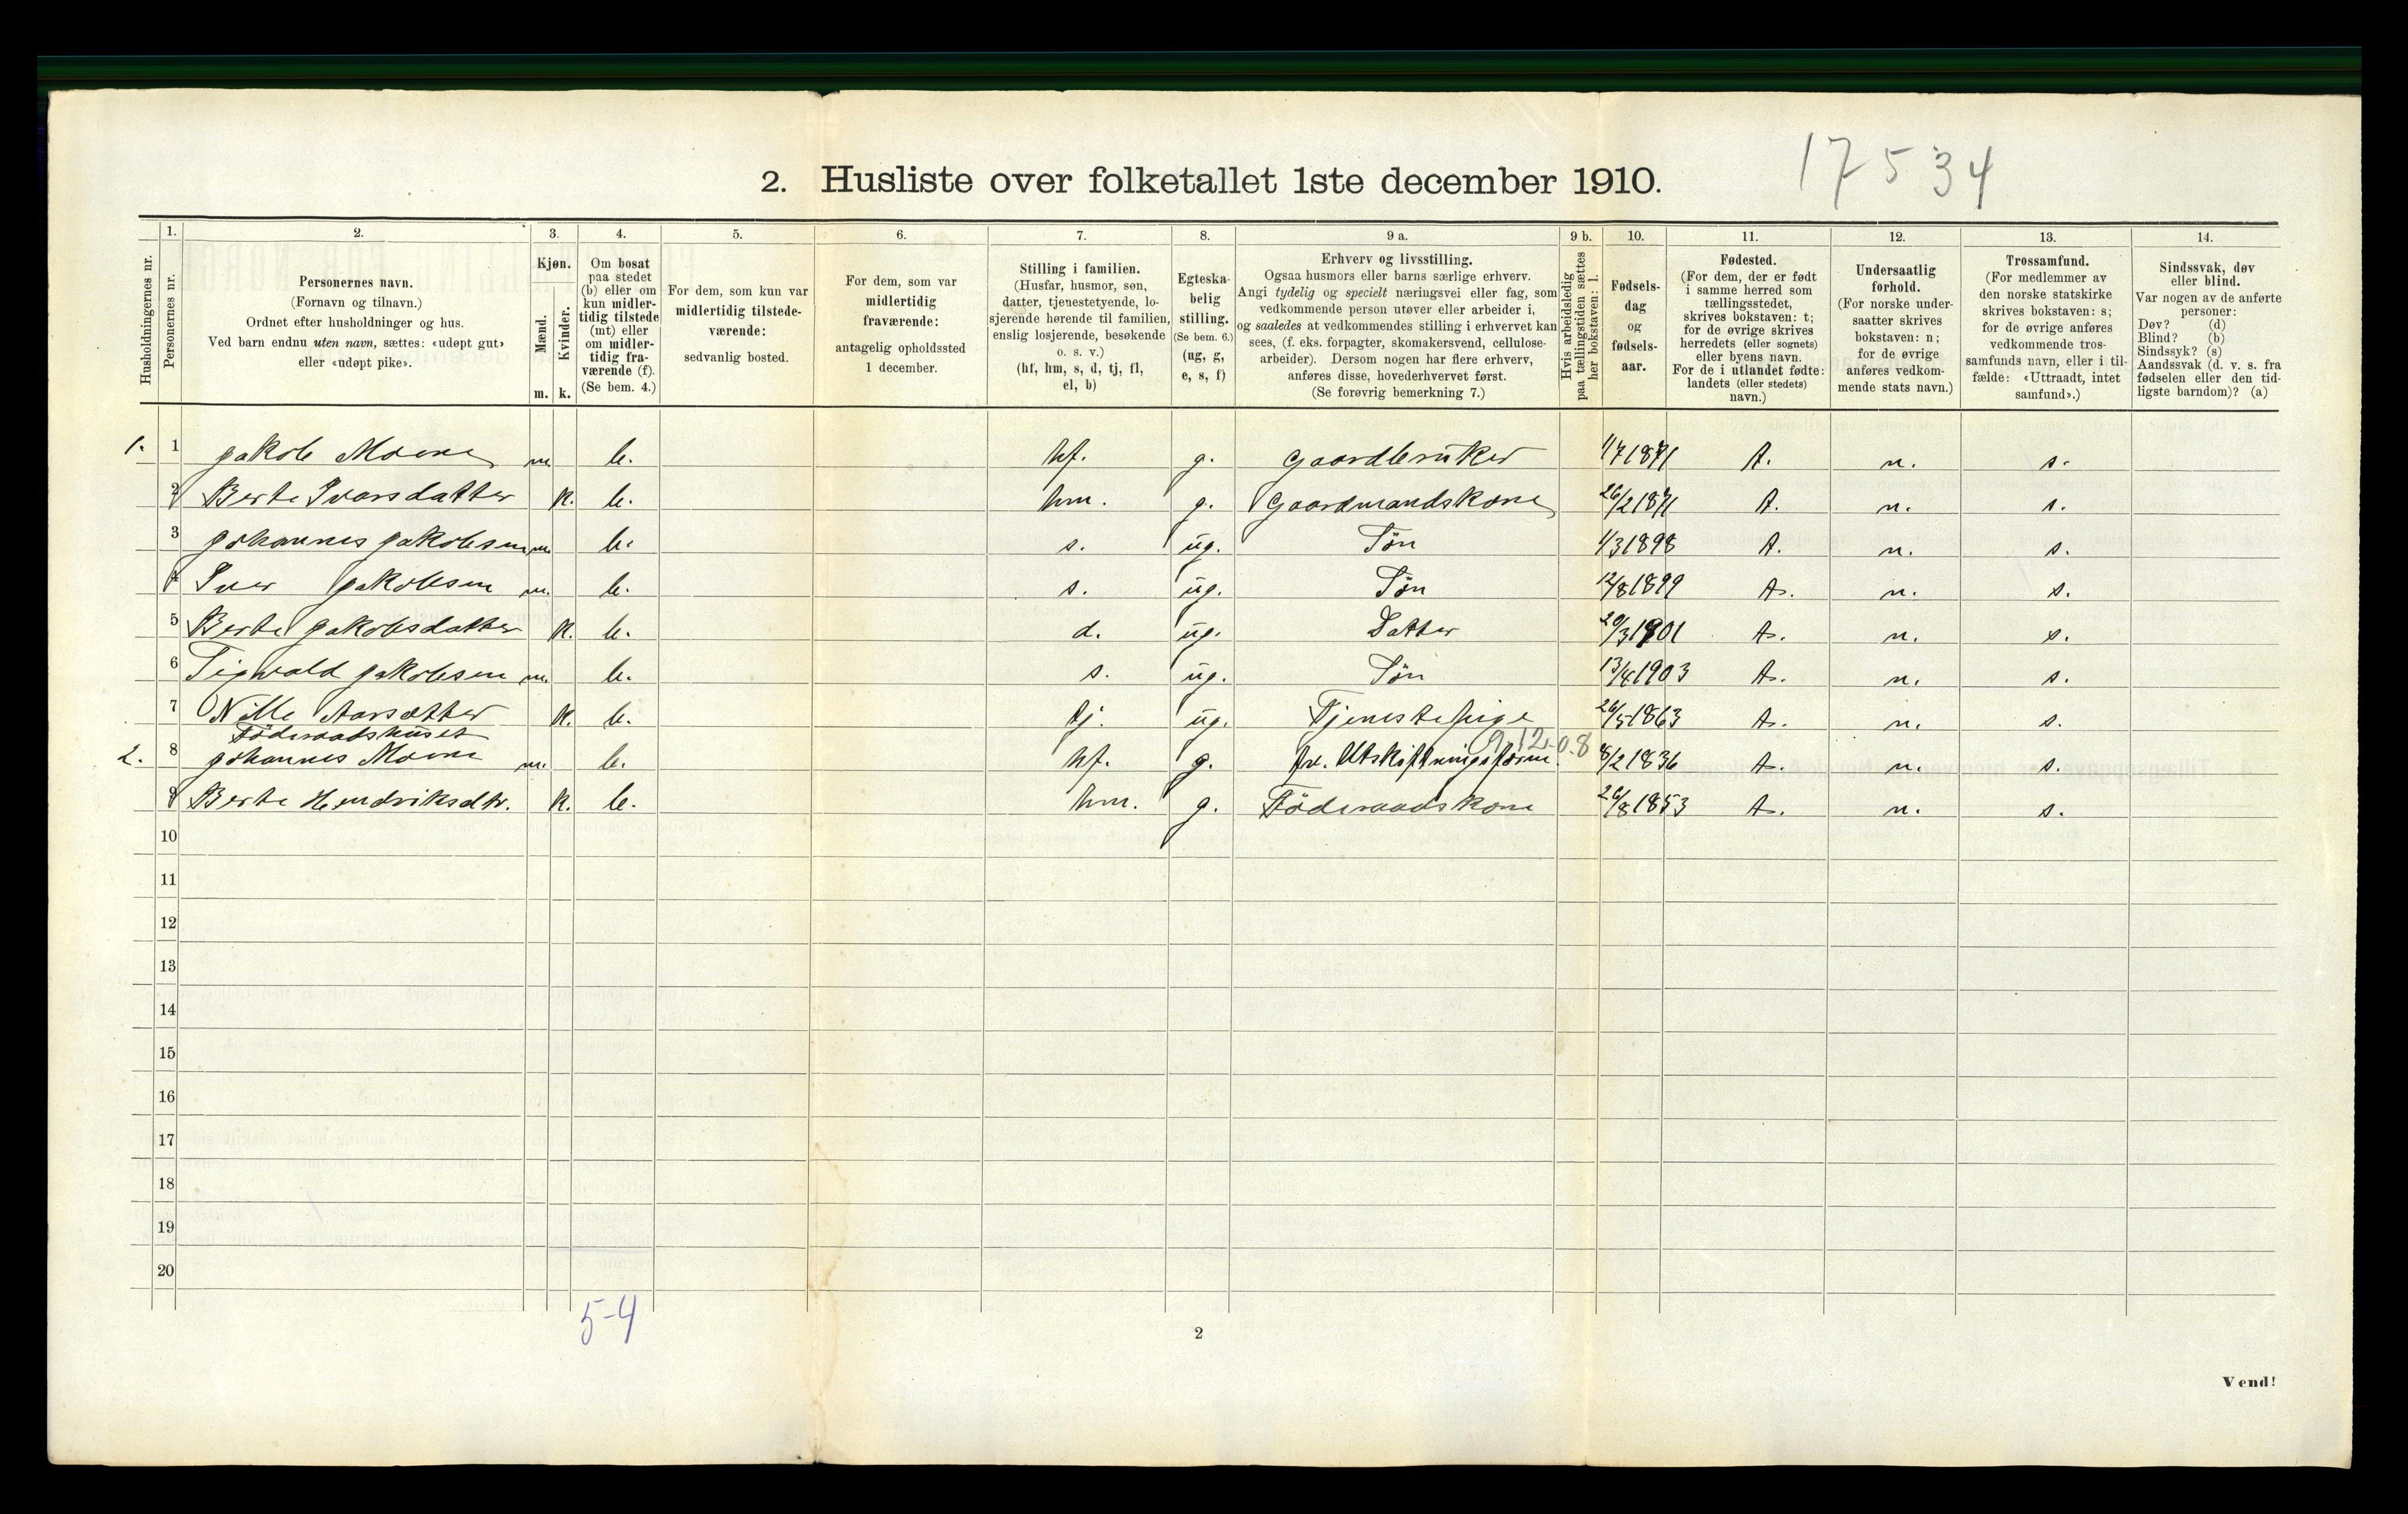 17534
2. Husliste over folketallet 1ste december 1910.
Husholdningernes nr.
1.
Personernes nr.
2.
Personernes navn.
(Fornavn og tilnavn.)
Ordnet efter husholdninger og hus.
Ved barn endnu uten navn, sættes: «udøpt gut»
eller «udøpt pike».
3.
Kjøn.
Mænd.
Kvinder.
m. k.
4.
Om bosat
paa stedet
(b) eller om
kun midler-
tidig tilstede
(mt) eller
om midler-
tidig fra-
værende (f).
(Se bem. 4.)
5.
For dem, som kun var
midlertidig tilstede-
værende:
sedvanlig bosted.
6.
For dem, som var
midlertidig
fraværende:
antagelig opholdssted
1 december.
7.
Stilling i familien.
(Husfar, husmor, søn,
datter, tjenestetyende, lo-
sjerende hørende til familien,
enslig losjerende, besøkende
o. s. v.)
(hf, hm, s, d, tj, fl,
el, b)
8.
Egteska-
belig
stilling.
(Se bem. 6.)
(ug, g,
e, s, f)
9 a.
Erhverv og livsstilling.
Ogsaa husmors eller barns særlige erhverv.
Angi tydelig og specielt næringsvei eller fag, som
vedkommende person utøver eller arbeider i,
og saaledes at vedkommendes stilling i erhvervet kan
sees, (f. eks. forpagter, skomakersvend, cellulose-
arbeider). Dersom nogen har flere erhverv,
anføres disse, hovederhvervet først.
(Se forøvrig bemerkning 7.)
9 b.
Hvis arbeidsledig
paa tællingstiden sættes
her bokstaven: l.
10.
Fødsels-
dag
og
fødsels-
aar.
11.
Fødested.
(For dem, der er født
i samme herred som
tællingsstedet,
skrives bokstaven: t;
for de øvrige skrives
herredets (eller sognets)
eller byens navn.
For de i utlandet fødte:
landets (eller stedets)
navn.)
12.
Undersaatlig
forhold.
(For norske under-
saatter skrives
bokstaven: n;
for de øvrige
anføres vedkom-
mende stats navn.)
13.
Trossamfund.
(For medlemmer av
den norske statskirke
skrives bokstaven: s;
for de øvrige anføres
vedkommende tros-
samfunds navn, eller i til-
fælde: «Uttraadt, intet
samfund».)
14.
Sindssvak, døv
eller blind.
Var nogen av de anførte
personer:
Døv? (d)
Blind? (b)
Sindssyk? (s)
Aandssvak (d. v. s. fra
fødselen eller den tid-
ligste barndom)? (a)
1. 1 Jakob Moene m. b. hf. g. Gaardbruker 1/7 1871 t. n. s.
2 Berte Ivarsdatter k. b. hm. g. Gaardmandskone 26/2 1871 t. n. s.
3 Johannes Jakobsen m. b. s. ug. Søn 1/3 1898 t. n. s.
4 Iver Jakobsen m. b. s. ug. Søn 12/8 1899 t. n. s.
5 Berte Jakobsdatter k. b. d. ug. Datter 20/3 1901 t. n. s.
6 Sigvald Jakobsen m. b. s. ug. Søn 13/4 1903 t. n. s.
7 Nille k. b. tj. ug. Tjenestepige 26/5 1863 t. n. s.
Föderaadshuset
9.12.0.8
2. 8 Johannes Moene m. b. hf. g. 8/2 1836 t. n. s.
9 Berte Hendriksdtr. k. b. hm. g. Föderaadskone 26/8 1853 t. n. s.
10
11
12
13
14
15
16
17
18
19
20
5-4
2
Vend!